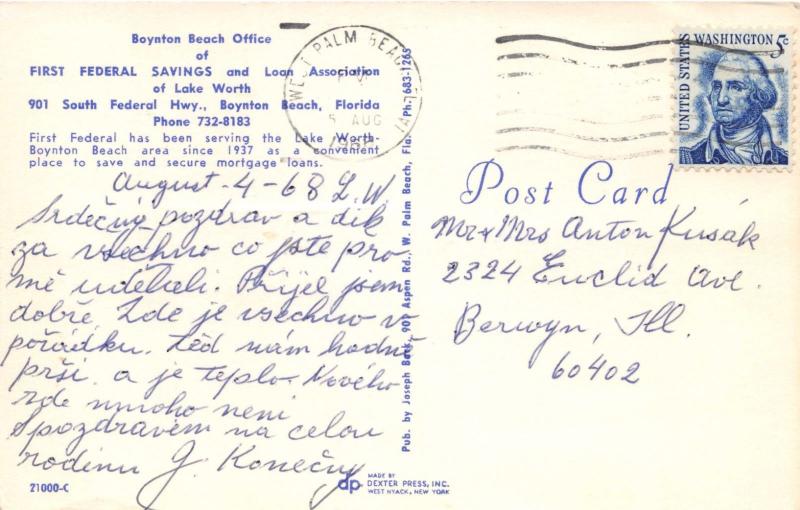 Boynton Beach Office
of
FIRST FEDERAL SAVINGS and Loan Association
of Lake Worth
901 South Federal Hwy., Boynton Beach, Florida
Phone 732-8183
First Federal has been serving the Lake Worth-
Boynton Beach area since 1937 as a convenient
place to save and secure mortgage loans.
August-4-68 L.W
Srdečný pozdrav a dík
za všechno co jste pro
mě udělali. Přijel jsem
dobře. Zde je všechno v
pořádku. Teď nám hodně
prší a je teplo. Nového
zde mnoho není
S pozdravem na celou
rodinu J. Konečný
21000-C
Pub. by Joseph Beck, 901 Aspen Rd., W. Palm Beach, Fla. Ph. 683-1265
MADE BY
DEXTER PRESS, INC.
WEST NYACK, NEW YORK
dp
WEST PALM BEACH
PM
5 AUG
UNITED STATES
WASHINGTON 5c
Post Card
Mr & Mrs Anton Kusák
2324 Euclid Ave.
Berwyn, Ill.
60402